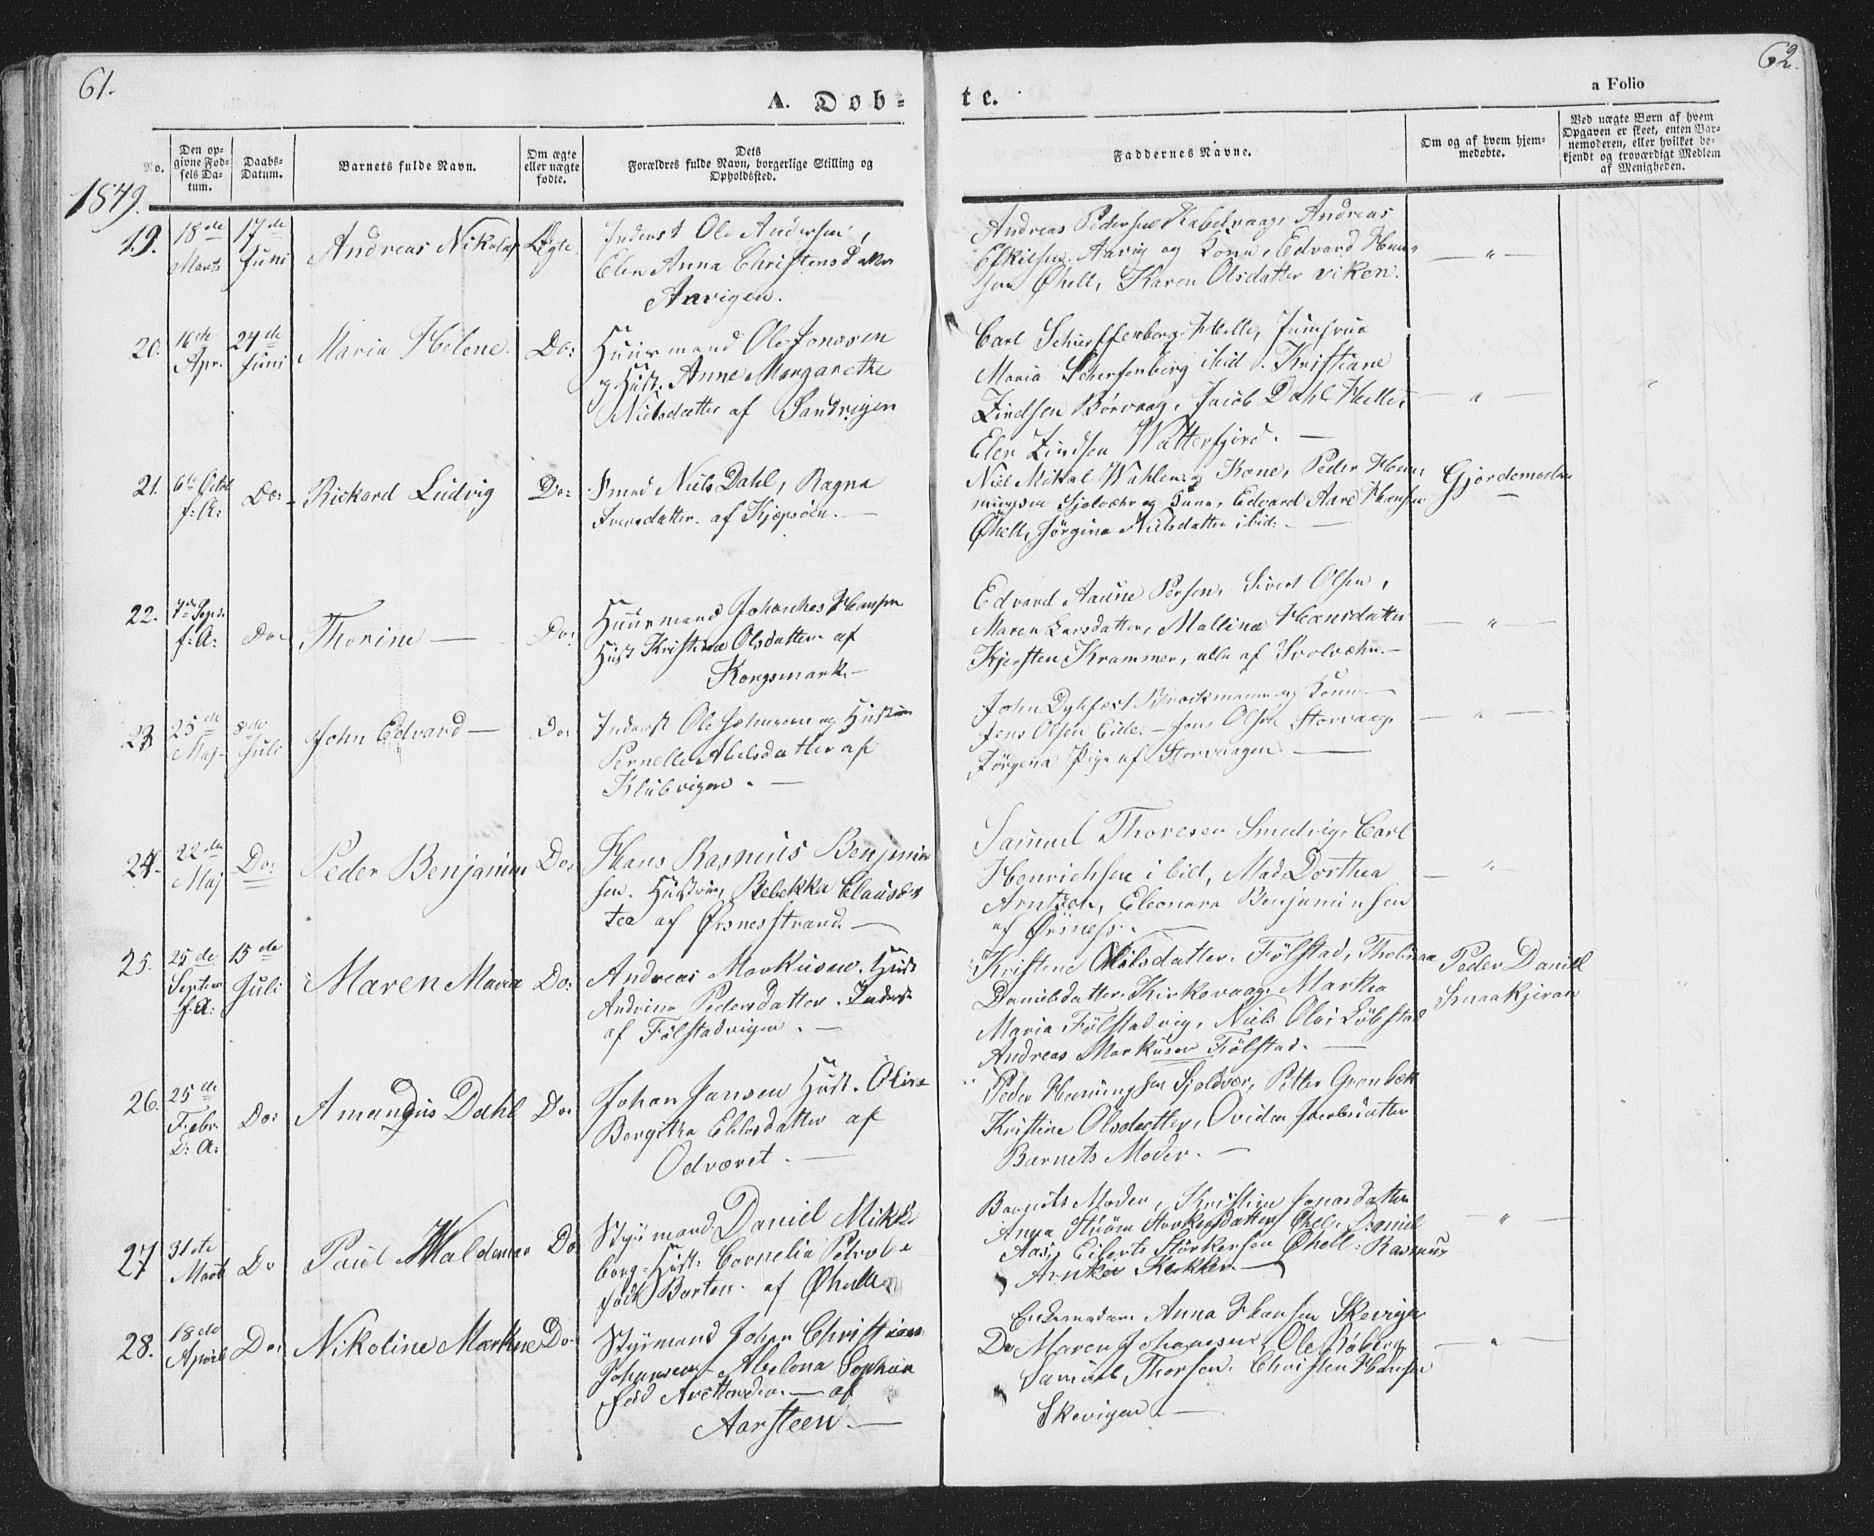 61.
62.
A. Døb-
te.
a Folio
No.
Den op-
givne Fød-
sels Da-
tum.
Daabs-
Datum.
Barnets fulde Navn.
Om ægte
eller uægte
fødte.
Dets
Forældres fulde Navn, borgerlige Stilling og
Opholdssted.
Faddernes Navne.
Om og af hvem hjem-
medøbte.
Ved uægte Børn af hvem
Opgaven er skeet, enten Bar-
nemoderen, eller hvilket be-
kjendt og troværdigt Medlem
af Menigheden.
1849.
19.
18de
Marts
17de
Juni
Andreas Nikolai
Ægte.
Inderst Ole Andersen,
Elen Anna Christensdatter
Aavigen.
Andreas Pedersen Kabelvaag, Andreas
Eskilsen Aavig og Kone, Edvard Han-
sen Øhell, Karen Olsdatter viken.
— " —
20.
16de
Apr.
24de
Juni
Maria Helene.
Do:
Huusmand Ole Jonssen
og Hust. Anne Margarethe
Nielsdatter af Sandvigen
Carl Schierffenberg Helle, Jumfrue
Maria Scherfenberg ibid. Kristiane
Zindsen Børvaag, Jacob Dahl Helle,
Elen Zindsen Watterfjord. —
— " —
21.
6te Octob
f: A:
Do:
Rickard Ludvig
Do:
Smed Niels Dahl, Ragna
Iversdatter af Kjeøsøen. —
Niel Mikal Wahlen og Kone, Peder Hem-
mingsen Sjolvær og Kone, Edvard Aare Hansen
Øhell, Jørgina Nielsdatter ibid: —
Gjordemoder
22.
7de Sept.
f: A:
Do:
Thorine —
Do:
Huusmand Johannes Hansen
Hust Kristina Olsdatter af
Kongsmark. —
Edvard Aaune Persen, Sivert Olsen,
Maren Larsdatter, Mallina Hansdatter
Kjersten Krammer, alle af Svolvær. —
— " —
23
25de
Maj.
8de
Juli
John Edvard —
Do:
Inderst Ole Johnsen og Hustru
Pernelle Abelsdatter af
Klubvigen. —
John Dykfest Brockmann og Kone —
Jens Olsen Eide. — Jens Olsen Storvaag,
Jørgena Pige af Storvaagen —
— " —
24.
22de
Maj
Do:
Peder Benjamin
Do:
Hans Rasmus Benjamin
sen. Hustru Rebekka Clausdat
ter af Ørsnesstrand. —
Samuel Thoresen Smedvig, Carl
Henrichsen ibid, Mad Dorthea
Arntzen, Eleonora Benjaminsen
af Ørsness. —
— " —
25.
25de
Septem
f: A:
15de
Juli
Maren Maria
Do:
Andreas Markusen. Hust
Andrina Pedersdatter. Inderst
af Følstadvigen. —
Kristine Nilsdatter Følstad, Tholinaa
Danielsdatter Kirkevaag, Martha
Maria Følstadvig, Niels Olai Løbstad
Andreas Markusen Følstad. —
Peder Daniel
Smaakjeran
26.
25de
Febr
D: A:
Do:
Amandus Dahl
Do:
Johan Jansen Hust. Oline
Bergitha Ellisdatter af
Odværet. —
Peder Hemmingsen Sjolvær, Petter Grønbæk
Kristine Olsdatter, Ovidia Jacobsdatter
Barnets Moder. —
27
31te
Marts
Do
Paul Waldemar
Do
Styrmand Daniel Mikkel
borg. Hust: Cornelia Petrole
født Borten. af Øhelle
Barnets Moder, Kristine Jonasdatter
Anna Strøm Størkersdatter Øhell, Daniel
Aas, Eilerts Størkersen Øhell. Rasmus
Arntker Klokker. —
— " —
28.
18de
April
Do:
Nikoline Martine
Do:
Styrmand Johan Christian
Johansen, Abelona Sophia
fød Arctander — af
Aarsteen. —
Enkemadam Anna Hansen Skevigen
Do Maren Johansen, Ole Røberg
Samuel Thorsen, Christen Hansen
Skevigen. —
— " —